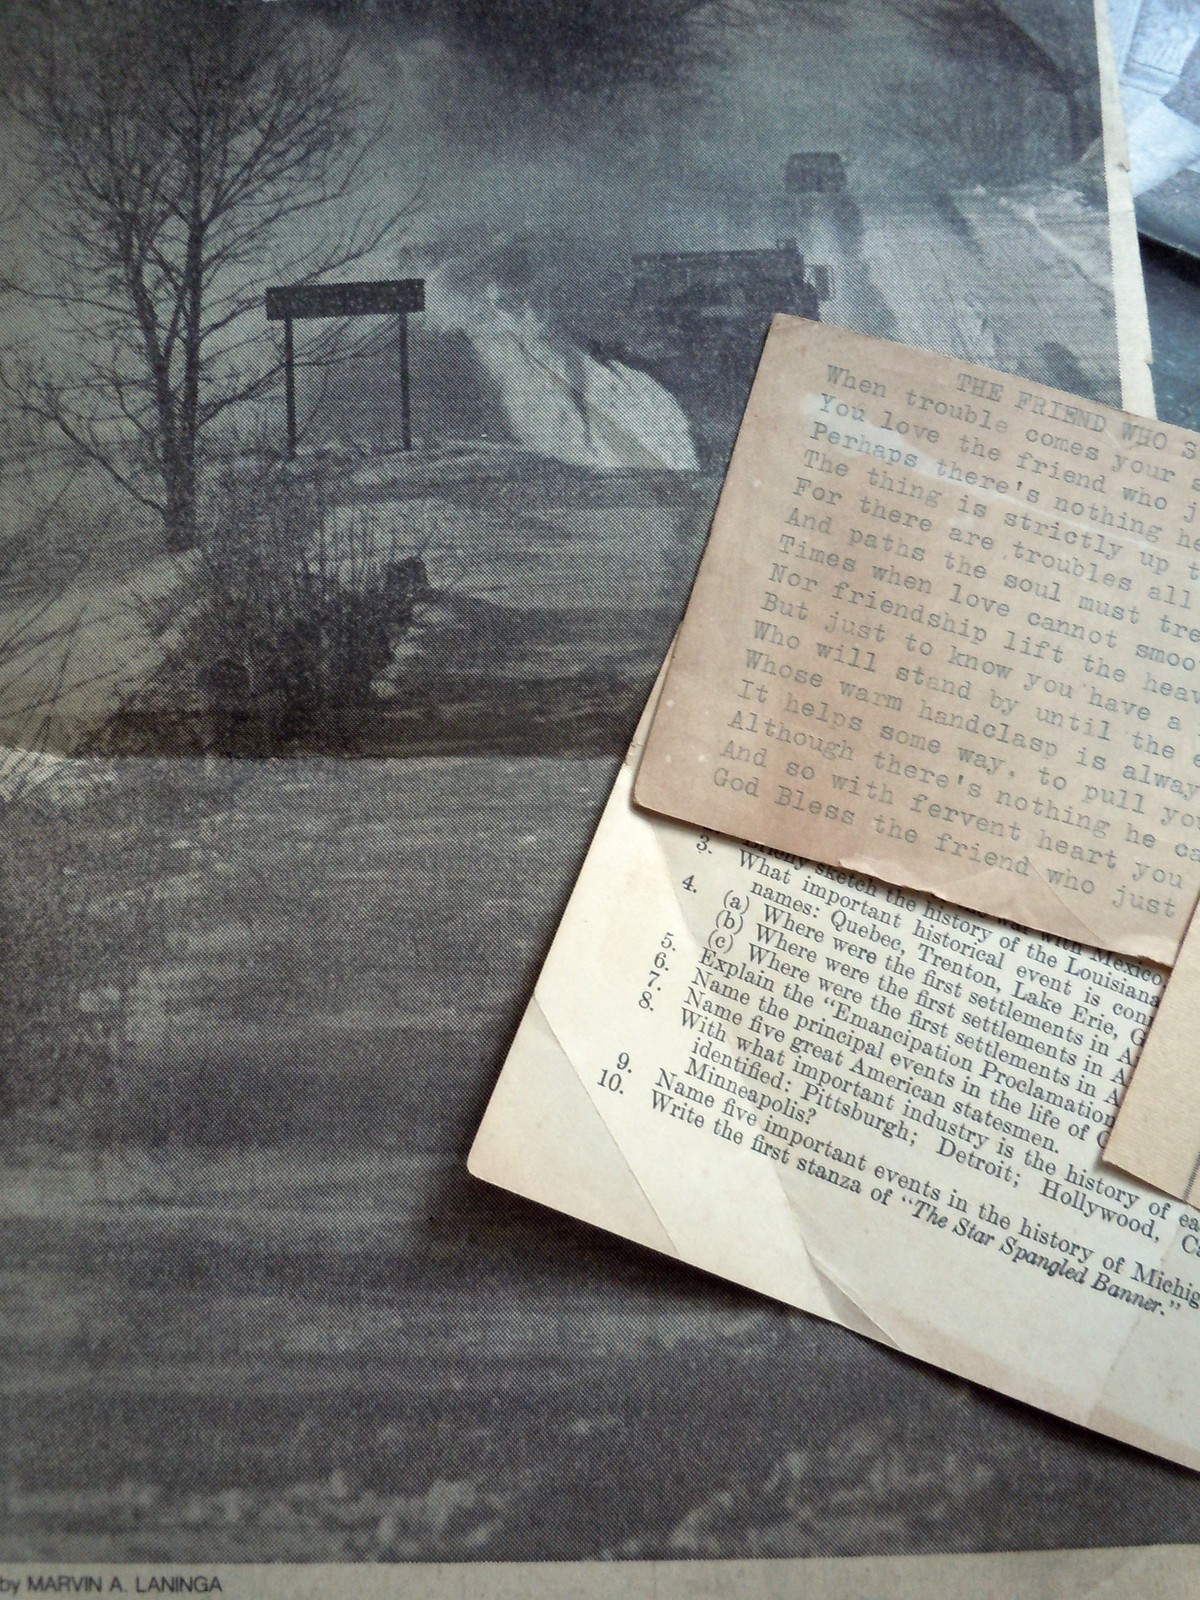 THE FRIEND WHO
When trouble comes your
You love the friend who
Perhaps there's nothing
The thing is strictly up
For there are troubles all
And paths the soul must
Times when love cannot
Nor friendship lift the
But just to know you have a
Who will stand by until the
Whose warm handclasp is
It helps some way, to pull
Although there's nothing he
And so with fervent heart you
God Bless the friend who just
war with Mexico.
3. Briefly sketch the history of the Louisiana
What important historical event is
names: Quebec, Trenton, Lake Erie,
4. (a) Where were the first settlements in
(b) Where were the first settlements in
(c) Where were the first settlements in
5. Explain the "Emancipation Proclamation
6. Name the principal events in the life of
7. Name five great American statesmen.
8. With what important industry is the history of
identified: Pittsburgh; Detroit; Hollywood,
Minneapolis?
9. Name five important events in the history of
10. Write the first stanza of "The Star Spangled Banner."
by MARVIN A. LANINGA